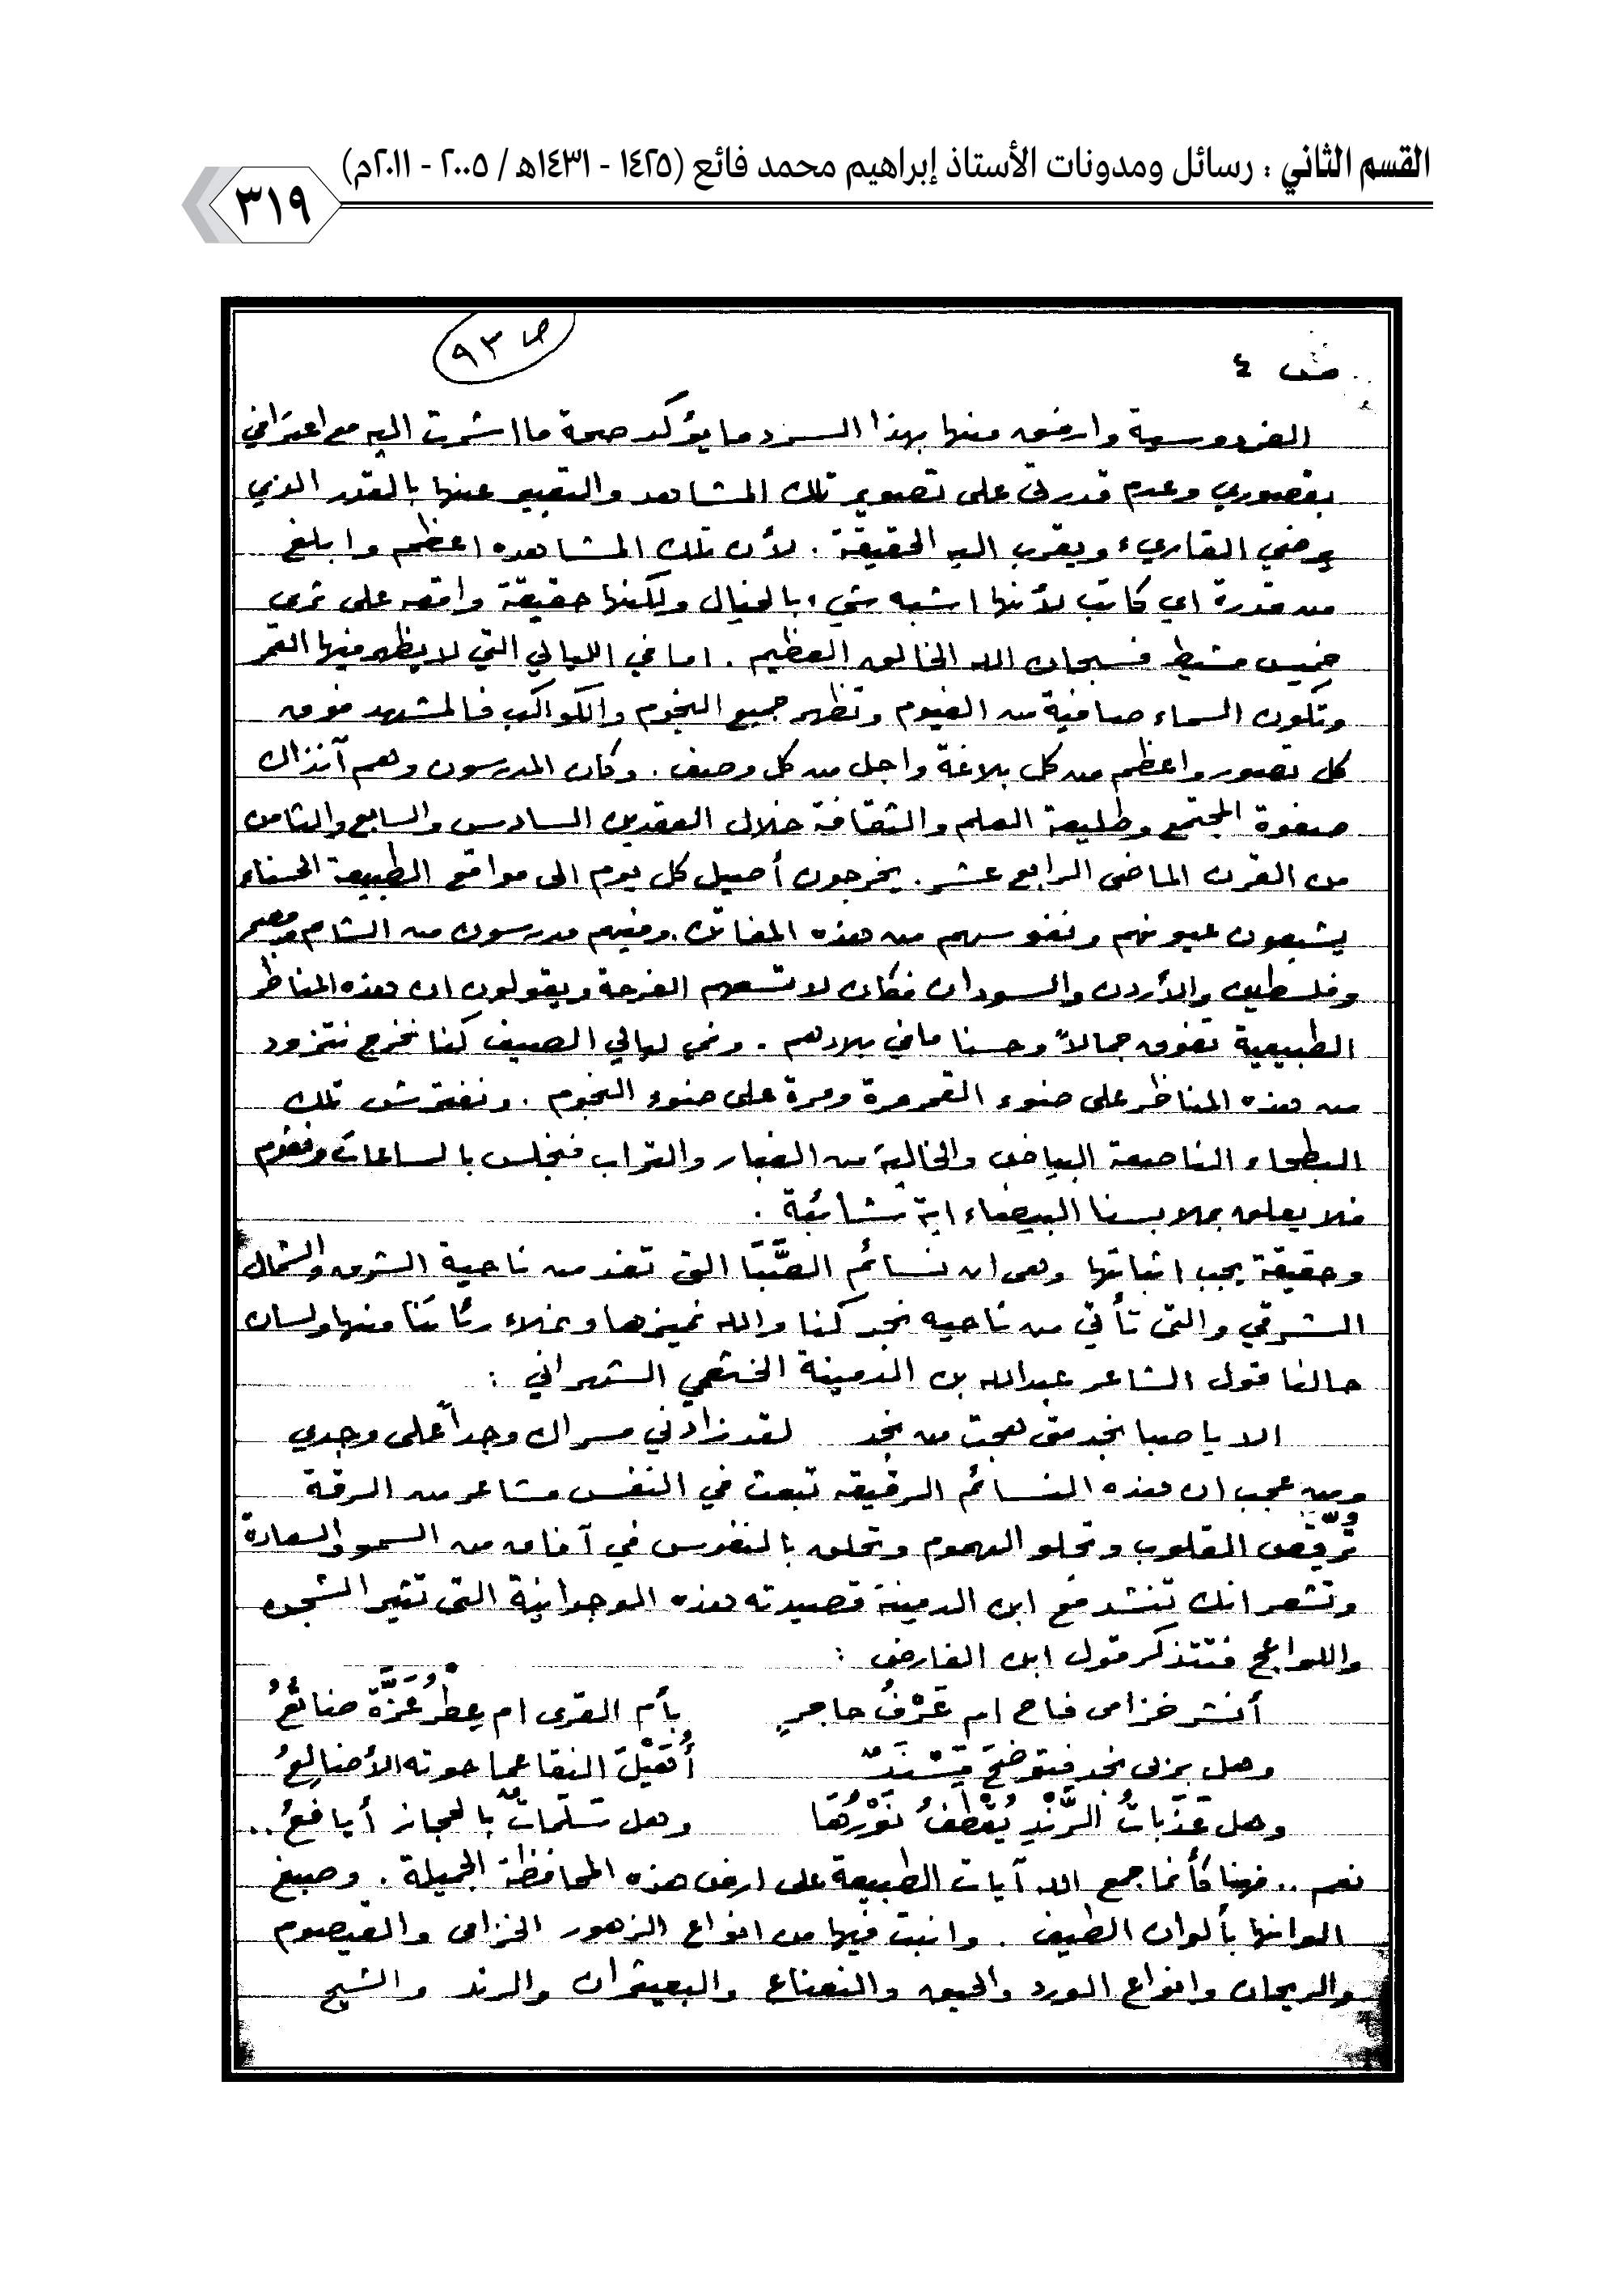 القسم الثاني : رسائل ومدونات الأستاذ إبراهيم محمد فائع (١٤٢٥ - ١٤٣١هـ / ٢٠٠٥ - ٢٠١١م)
٣١٩
ص ٩٣
ص ٤
الفردوسية وارفق منها بهذا السرد ما يؤكد صحة ما اشرت اليه مع اعترافي
بقصوري وعدم قدرتي على تصوير تلك المشاهد والتعبير عنها بالقدر الذي
يرضي القاريء ويقرب اليه الحقيقة . لأن تلك المشاهده اعظم وابلغ
من قدرة اي كاتب لأنها اشبه شيء بالخيال ولكنها حقيقة واقعه على ثرى
خميس مشيط فسبحان الله الخالق العظيم . اما في الليالي التي لا يظهر فيها القمر
وتكون السماء صافية من الغيوم وتظهر جميع النجوم والكواكب فالمشهد فوق
كل تصور واعظم من كل بلاغة واجل من كل وصف . وكان المدرسون وهم آنذاك
صفوة المجتمع وطليعة العلم والثقافة خلال العقدين السادس والسابع والثامن
من القرن الماضي الرابع عشر . يخرجون أصيل كل يوم الى مواقع الطبيعة الحسناء
يشبعون عيونهم ونفوسهم من هذه المفاتن . وفيهم مدرسون من الشام ومصر
وفلسطين والأردن والسودان فكان لا تسعهم الفرحة ويقولون ان هذه المناظر
الطبيعية تفوق جمالاً وحسنا ما في بلادهم . وفي ليالي الصيف كنا نخرج نتزود
من هذه المناظر على ضوء القمر مرة ومرة على ضوء النجوم . ونفترش تلك
البطحاء الناصعة البياض والخالية من الغبار والتراب فنجلس بالساعات ونقوم
فلا يعلق بملابسنا البيضاء اية شائبة .
وحقيقة يجب اثباتها وهي ان نسائم الصَّبَا التي تفد من ناحية الشرق والشمال
الشرقي والتي تأتي من ناحيه نجد كنا والله نميزها ونملاء رئاتنا منها ولسان
حالنا قول الشاعر عبدالله بن الدمينة الخثعمي الشهراني :
الا يا صبا نجد متى هجت من نجد لقد زادني مسراك وجداً على وجدي
ومن عجب ان هذه النسائم الرقيقه تبعث في النفس مشاعر من الرقة
تُرقِّص القلوب وتجلو الهموم وتحلق بالنفوس في آفاق من السمو والسعادة
وتشعر انك تنشد مع ابن الدمينة قصيدته هذه الوجدانية التي تثير الشجون
واللواعج فتتذكر قول ابن الفارض :
أنشر خزامى فاح ام عَرْفُ حاجرٍ بأم القرى ام عِطْرُ عَزَّةَ ضائعُ
وهل بربى نجد فتوضحَ مَسْنَدٌ أُهَيْلَ النقا عما حوته الأضالعُ
وهل عَذَبَاتُ الرَّنْدِ يُقْطَفُ نَوْرُهَا وهل سَلَمَاتٌ بالحجاز أيافعُ ..
نعم .. فهنا كأنما جمع الله آيات الطبيعة على ارض هذه المحافظة الجميلة . وصبغ
الوانها بألوان الطيف . وانبت فيها من انواع الزهور الخزامى والقيصوم
والريحان وانواع الورد والحبق والنعناع والبعيثران والرند والشيح